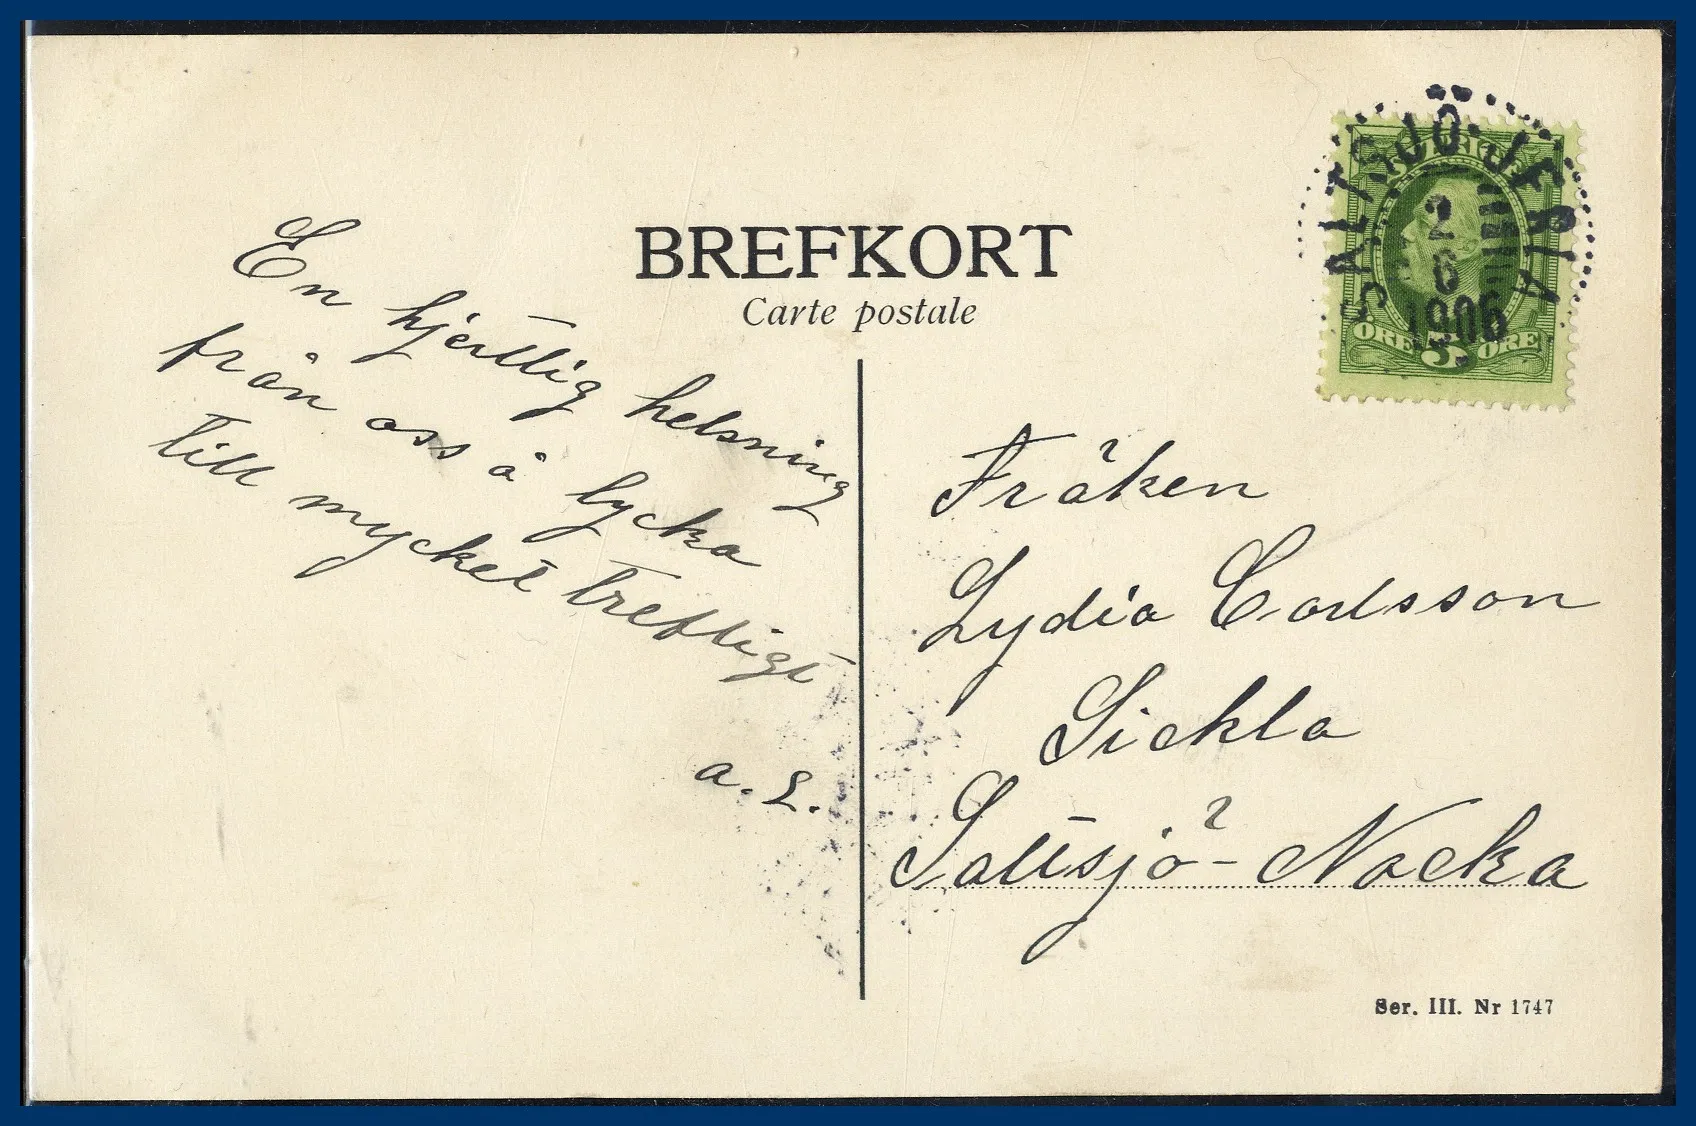 BREFKORT
Carte postale
SALTSJÖ-JERLA
2
6
1906
SVERIGE
ÖRE 5 ÖRE
En hjertlig helsning
från oss å lycka
till mycket trefligt
a. L.
Fräken
Lydia Carlsson
Sickla
Saltsjö-Nacka
Ser. III. Nr 1747